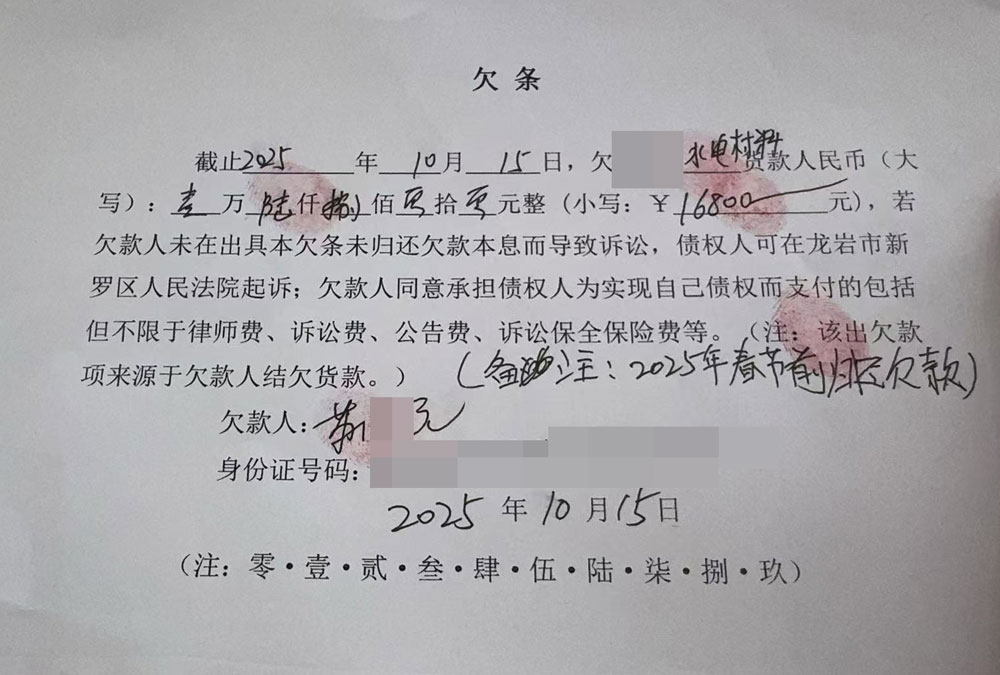 欠 条
截止2025年10月15日，欠水电材料货款人民币（大
写）：壹万陆仟捌佰零拾零元整（小写：￥16800元），若
欠款人未在出具本欠条未归还欠款本息而导致诉讼，债权人可在龙岩市新
罗区人民法院起诉；欠款人同意承担债权人为实现自己债权而支付的包括
但不限于律师费、诉讼费、公告费、诉讼保全保险费等。（注：该出欠款
项来源于欠款人结欠货款。）（备注：2025年春节前归还欠款）
欠款人：元
身份证号码：
2025年10月15日
（注：零·壹·贰·叁·肆·伍·陆·柒·捌·玖）